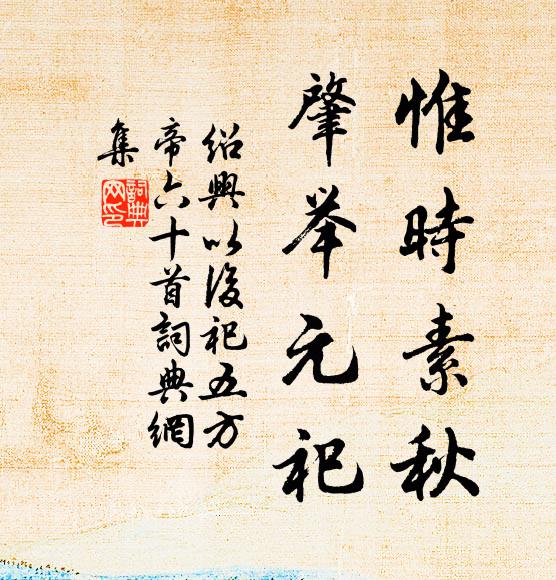 惟時素秋
肇举元祀
紹興以後祀五方
帝六十首詞典網
集
詞典
网印